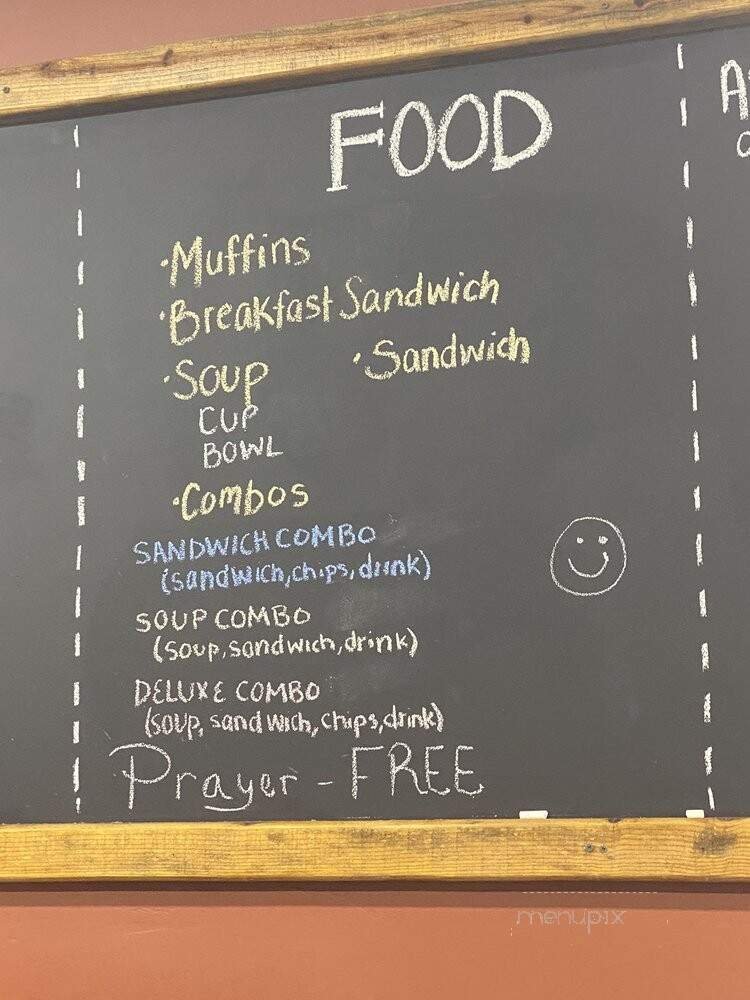 FOOD
·Muffins
·Breakfast Sandwich
·Soup ·Sandwich
CUP
BOWL
·Combos
SANDWICH COMBO
(sandwich, chips, drink)
SOUP COMBO
(soup, sandwich, drink)
DELUXE COMBO
(soup, sandwich, chips, drink)
Prayer - FREE
menupix